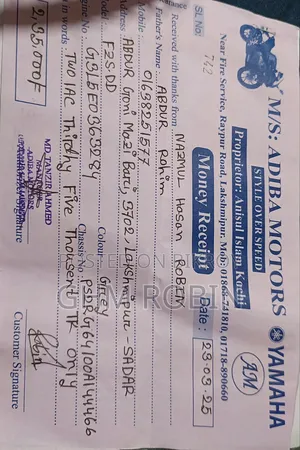 M/S: ADIBA MOTORS
YAMAHA
STYLE OVER SPEED
Proprietor: Anisul Islam Kachi
AM
Near Fire Service, Raypur Road, Lakshmipur, Mob: 01866-741810, 01718-890660
SL No: 742
Money Receipt
Date: 23-03-25
Received with thanks from NAZMUL Hosan ROBEIN
Father's Name ABDUR Rahim
Mobile 01638251577
Address ABDUR Goni Mazi Bari, 3702, Lakshmipur - SADAR
FZS-DD Colour Grrey
G3L5E0363284 Chassis No. PS2RG7
in words: Two lac Thirdhy Five Thousent TK only
2,35,000/
MD. TANZIR AHMED
ADIBA MOTORS
Signature
Customer Signature